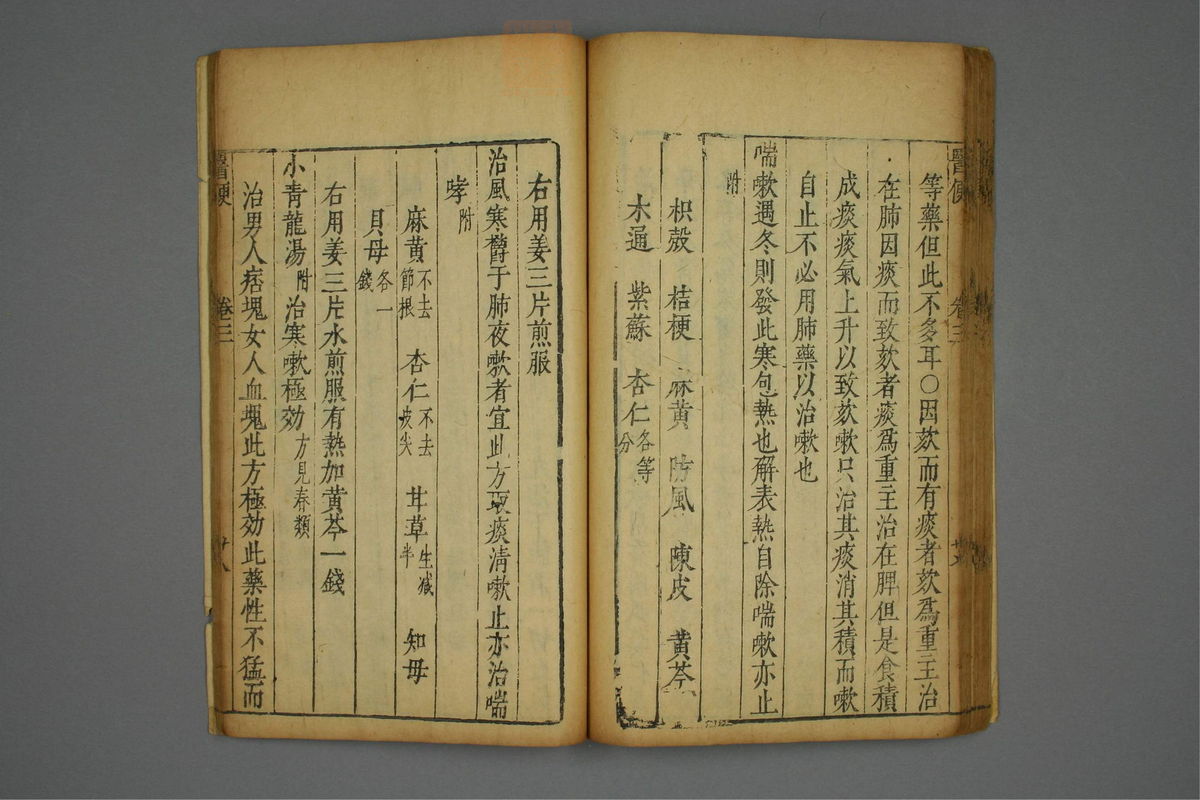 醫便 卷三 廿八
等藥但此不多耳○因欬而有痰者欬爲重主治
在肺因痰而致欬者痰爲重主治在脾但是食積
成痰痰氣上升以致欬嗽只治其痰消其積而嗽
自止不必用肺藥以治嗽也
喘嗽遇冬則發此寒包熱也解表熱自除喘嗽亦止
附
枳殼 桔梗 麻黃 防風 陳皮 黃芩
木通 紫蘇 杏仁各等分
右用姜三片煎服
治風寒欝于肺夜嗽者宜此方取痰淸嗽止亦治喘
哮附
麻黃不去節根 杏仁不去皮尖 甘草生減半 知母
貝母各一錢
右用姜三片水煎服有熱加黃芩一錢
小靑龍湯附治寒嗽極効方見春類
治男人痞塊女人血塊此方極効此藥性不猛而
醫便 卷三 廿八